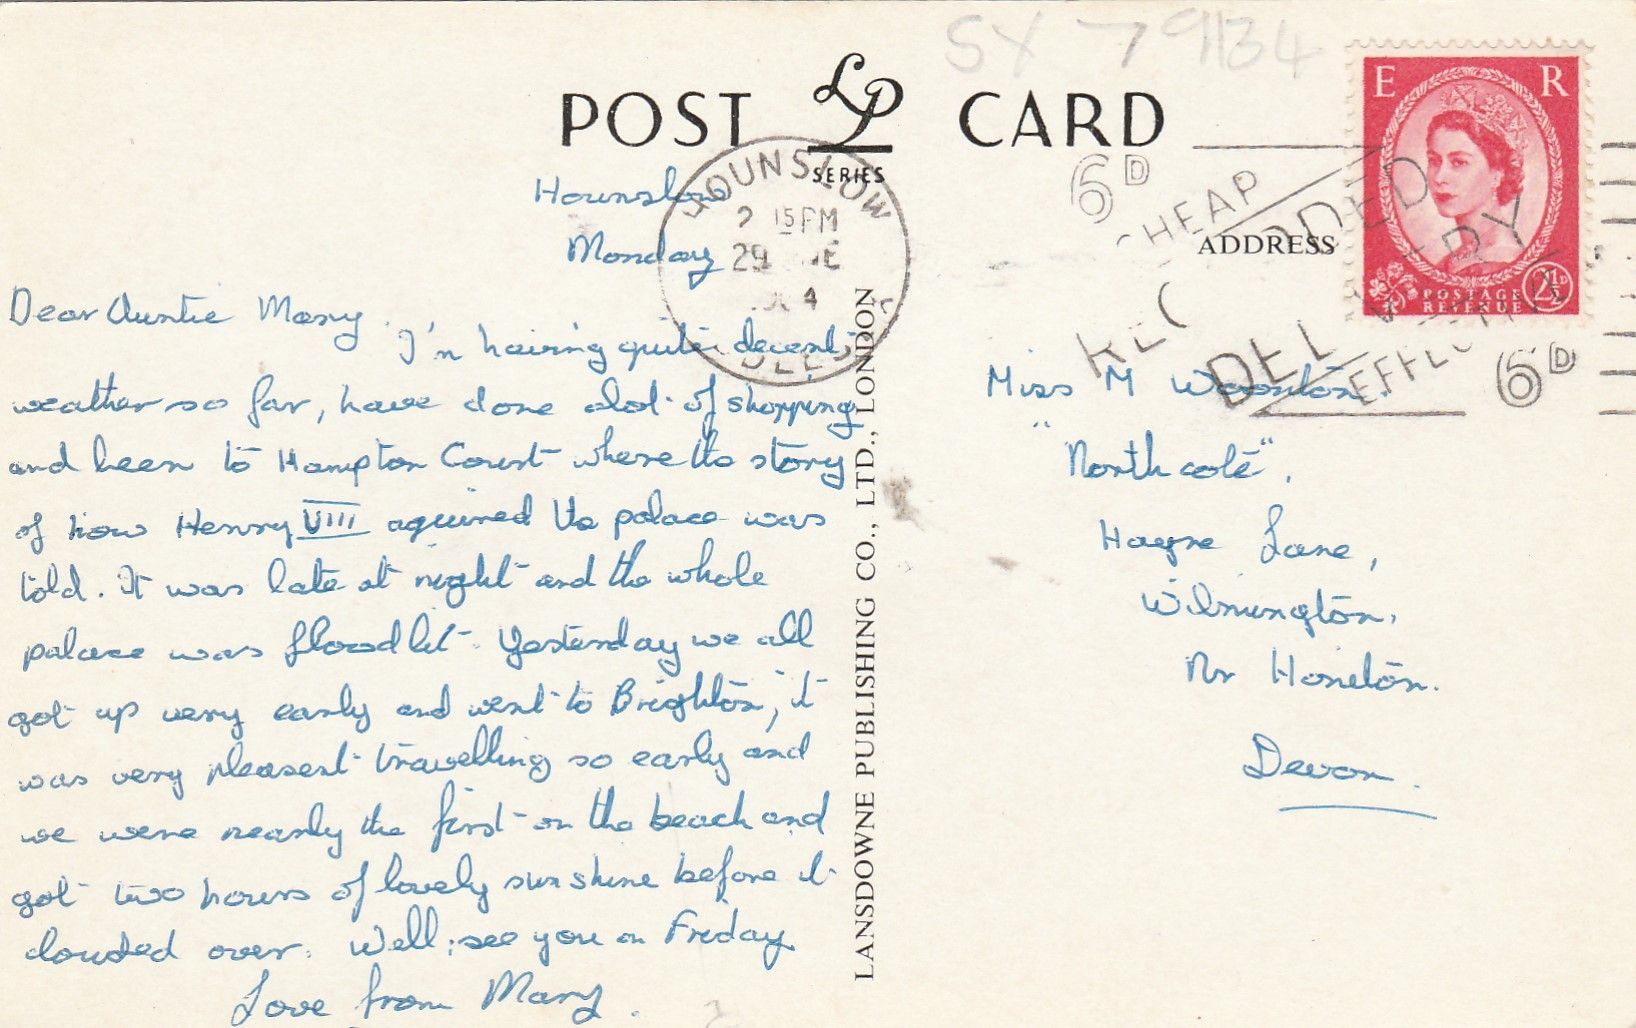 SX 79134
POST LP CARD
SERIES
HOUNSLOW
2 15 PM
29
4
6D
CHEAP
RECORDED
DELIVERY
6D
E R
POSTAGE
REVENUE
2½D
ADDRESS
LANSDOWNE PUBLISHING CO., LTD., LONDON
Hounslow
Monday
Dear Auntie Mary.
I'm having quite decent
weather so far, have done alot of shopping
and been to Hampton Court where the story
of how Henry VIII aquired the palace was
told. It was late at night and the whole
palace was floodlit. Yesterday we all
got up very early and went to Brighton, it
was very pleasent travelling so early and
we were nearly the first on the beach and
got two hours of lovely sunshine before it
clouded over. Well, see you on Friday
Love from Mary.
Miss M
"Northcote",
Hayne Lane,
Wilmington,
Nr Honiton.
Devon.